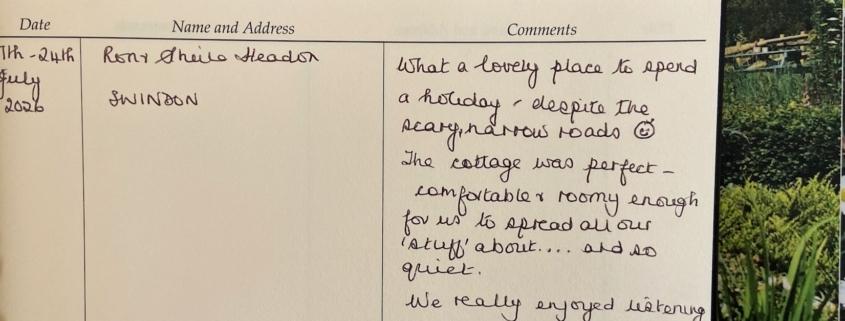 Date Name and Address Comments
7th - 24th
July
2026
Ron & Sheila Headon
SWINDON
What a lovely place to spend
a holiday - despite the
scary, narrow roads
The cottage was perfect -
comfortable & roomy enough
for us to spread all our
'stuff' about.... and so
quiet.
We really enjoyed listening